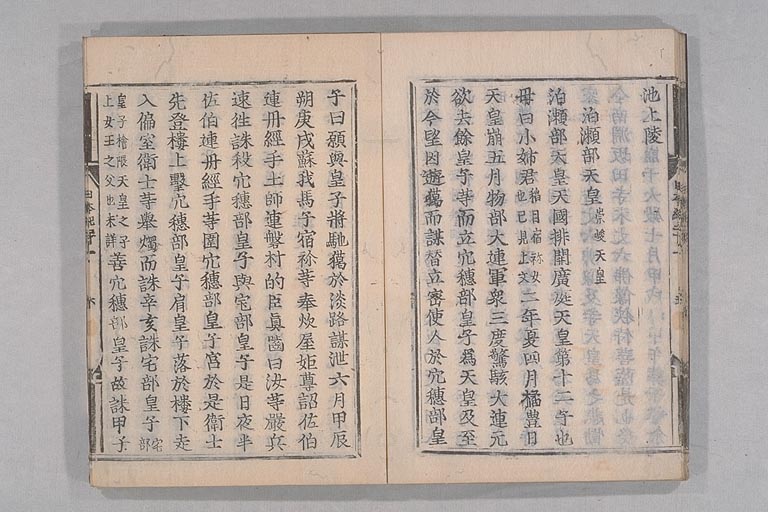 池上陵
泊瀬部天皇 崇峻天皇
泊瀬部天皇天國排開廣庭天皇第十二子也
母曰小姉君 稻目宿祢女也已見上文 二年夏四月橘豊日
天皇崩五月物部大連軍衆三度驚駭大連元
欲去餘皇子等而立穴穗部皇子爲天皇及至
於今望因遊獵而謀替立密使人於穴穗部皇
子曰願與皇子將馳獵於淡路謀泄六月甲辰
朔庚戌蘇我馬子宿祢等奉炊屋姫尊詔佐伯
連丹經手土師連磐村的臣眞噛曰汝等嚴兵
速往誅殺穴穗部皇子與宅部皇子是日夜半
佐伯連丹經手等圍穴穗部皇子宮於是衛士
先登樓上擊穴穗部皇子肩皇子落於樓下走
入偏室衛士等舉燭而誅辛亥誅宅部皇子 宅部
皇子檜隈天皇之子上女王之父也未詳 善穴穗部皇子故誅甲子